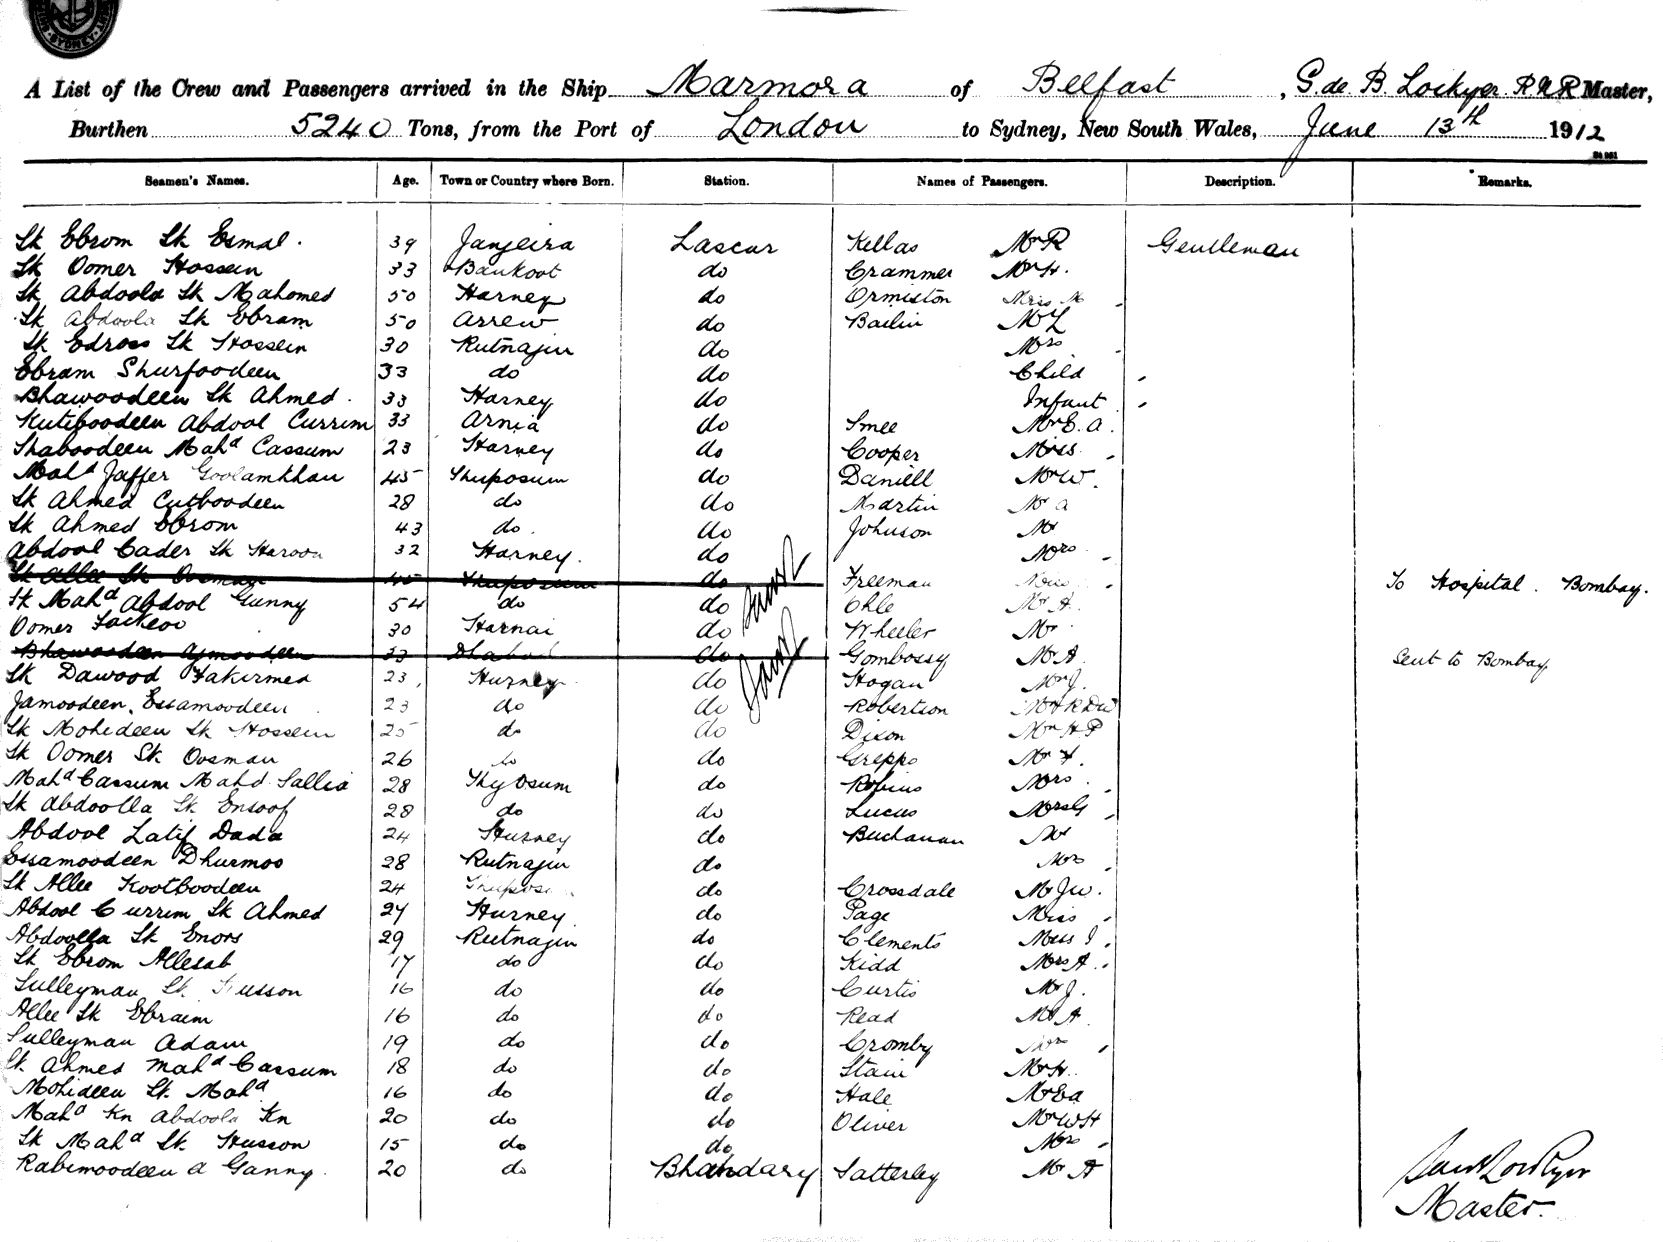 SYDNEY
A List of the Crew and Passengers arrived in the Ship Marmora of Belfast, G. de B. Lockyer R N R Master,
Burthen 5240 Tons, from the Port of London to Sydney, New South Wales, June 13th 1912
Seamen's Names. Age. Town or Country where Born. Station. Names of Passengers. Description. Remarks.
Sk Ebrom Sk Esmal. 39 Janjeira Lascar Kellas Mr R Gentleman
Sk Oomer Hossein 33 Bankoot do Crammer Mr H.
Sk Abdoola Sk Mahomed 50 Harney do Ormiston Miss M
Sk Abdoola Sk Ebram 50 Arrew do Bailin Mr L
Sk Edross Sk Hossein 30 Rutnajin do Mrs
Ebram Shurfoodeen 33 do do Child
Bhawoodeen Sk Ahmed. 33 Harney do Infant
Kutiboodeen Abdool Currim 33 Arnia do Smee Mr E. A.
Shaboodeen Mahd Cassum 23 Harney do Cooper Miss
Mahd Jaffer Goolamkhan 45 Thuposum do Daniell Mr W.
Sk Ahmed Cutboodeen 28 do do Martin Mr A
Sk Ahmed Ebrom 43 do. do Johnson Mr
Abdool Cader Sk Haroon 32 Harney. do Mrs
Sk Allee Sk Oosman 45 Thuposum do Freeman Miss To Hospital. Bombay.
Sk Mahd Abdool Gunny 54 do do Ohle Mr A.
Oomer 30 Harnai do Wheeler Mr
Bhawoodeen Ajmoodeen 33 do Gombossy Mr A Sent to Bombay
Sk Dawood Fakirmed 23 Hurney do Hogan Mr J.
Jamoodeen Essamoodeen 23 do do Robertson
Sk Mohideen Sk Hossein 25 do do Dixon Mr H P
Sk Oomer Sk Oosman 26 do do Greppo Mr
Mahd Cassum Mahd Sallia 28 Thyosum do Robins Mrs
Sk Abdoolla Sk Ensoof 28 do do Lucus Mrs G
Abdool Latif Dada 24 Hurney do Buchanan Mr
Essamoodeen Dhurmoo 28 Rutnajin do Mrs
Sk Allee Kootboodeen 24 do Crossdale Mr J W.
Abdool Currim Sk Ahmed 24 Hurney do Page Miss
Abdoolla Sk Enors 29 Rutnajin do Clements Miss J.
Sk Ebrom Allesab 17 do do Kidd Mrs A.
Sulleyman Sk Husson 16 do do Curtis Mr J.
Allee Sk Ebraim 16 do do Read Mr A.
Sulleyman Adam 19 do do Cromby Mrs
Sk. Ahmed Mahd Cassum 18 do do Stain Mr H.
Mohideen Sk. Mahd 16 do do Hale Mr E A
Mahd Kn Abdoola Kn 20 do do Oliver Mr W H
Sk Mahd Sk. Husson 15 do do Mrs
Rabimoodeen A Ganny. 20 do Bhandary Satterley Mr A
Master.